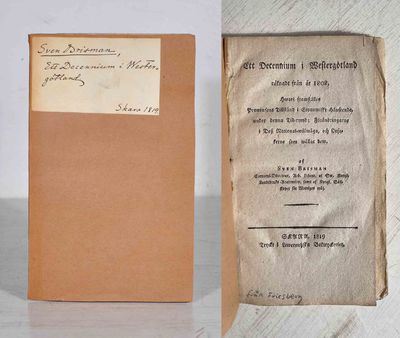 Sven Brisman,
Ett Decennium i Wester-
götland
Skara 1819
Ett Decennium i Westergötland
räknadt från år 1808,
Hwari framställes
Provinsens Tillstånd i Economiskt Hänseende,
under denna Tid-rymd; Förändringarne
i Dess National-wälmåga, och Orsa-
kerne som wållat dem.
af
SVEN BRISMAN
SKARA, 1819
Tryckt i Lewerentzska Boktryckeriet.
från Friesberg